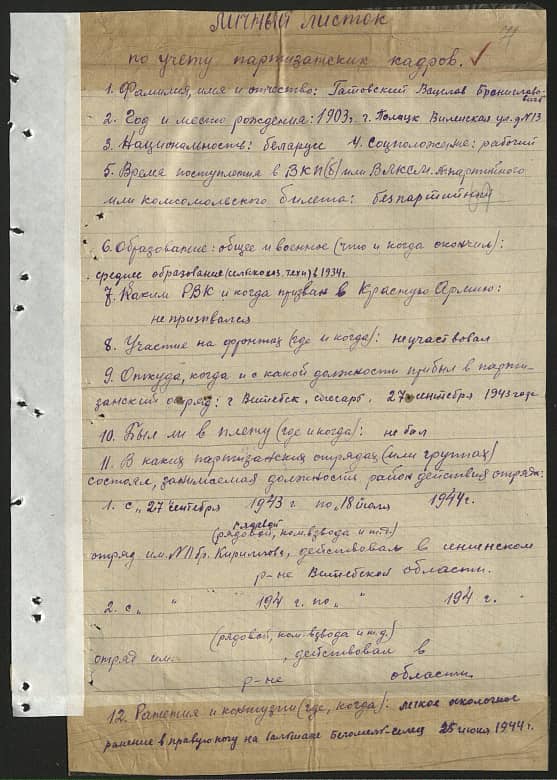 Личный листок
по учету партизанских кадров.
1. Фамилия, имя и отчество: Гатовский Вацлав Брониславо-
вич
2. Год и место рождения: 1903, г. Полацк Виленская ул. д №13
3. Национальность: беларус 4. Соцположение: рабочий
5. Время поступления в ВКП(б) или ВЛКСМ. № партийного
или комсомольского билета: безпартийный
6. Образование: общее и военное (что и когда окончил):
среднее образование (сельхоз. техн) в 1934г.
7. Каким РВК и когда призван в Красную Армию:
не призывался
8. Участие на фронтах (где и когда): не участвовал
9. Откуда, когда и с какой должности прибыл в парти-
занский отряд: г Витебск, слесарь, 27 сентября 1943 года
10. Был ли в плену (где и когда): не был
11. В каких партизанских отрядах (или группах)
состоял, занимаемая должность район действия отряда:
1. с „27" сентября 1943 г по „18 июля 1944г.
рядовой
(рядовой, ком. взвода и т.д.)
отряд им. бр. Кириллова, действовал в сенненском
р-не Витебской области.
2. с „ " 194 г. по „ " 194 г.
(рядовой, ком. взвода и т.д.)
отряд им. , действовал в
р-не области.
12. Ранения и контузии (где, когда): легкое осколочное
ранение в правую ногу на Бегомель 25 июня 1944г.